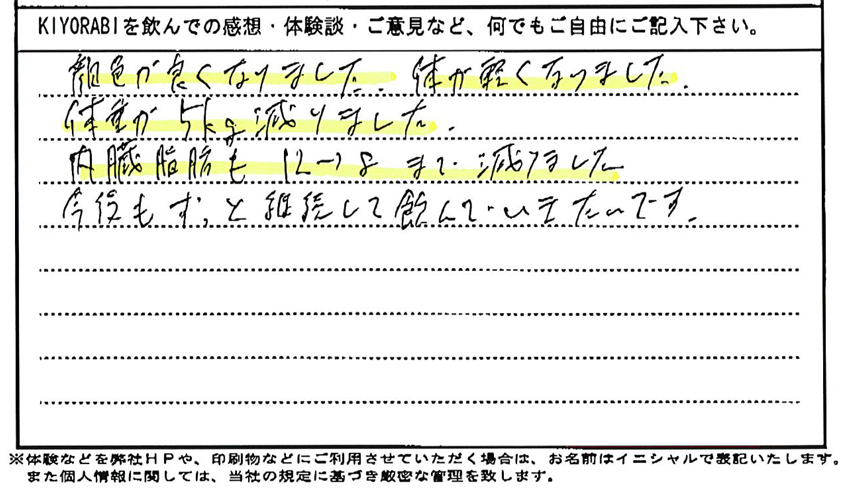 KIYORABIを飲んでの感想・体験談・ご意見など、何でもご自由にご記入下さい。
顔色が良くなりました。体が軽くなりました。
体重が5kg減りました。
内臓脂肪も12→8まで減りました
今後もずっと継続して飲んでいきたいです。
※体験などを弊社HPや、印刷物などにご利用させていただく場合は、お名前はイニシャルで表記いたします。
また個人情報に関しては、当社の規定に基づき厳密な管理を致します。